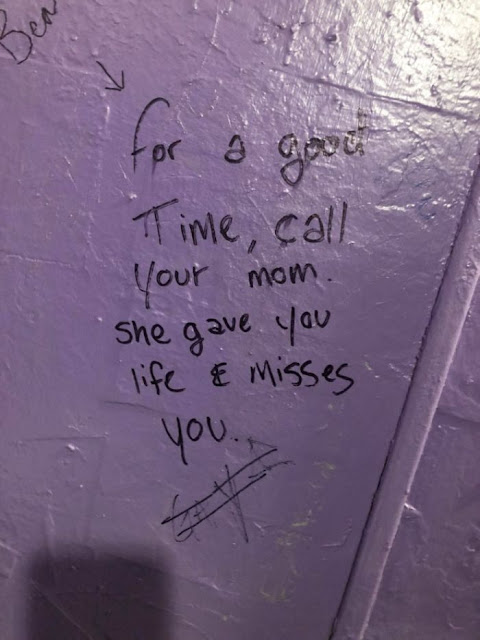 Ben
for a good
Time, call
Your mom.
she gave you
life & misses
you.